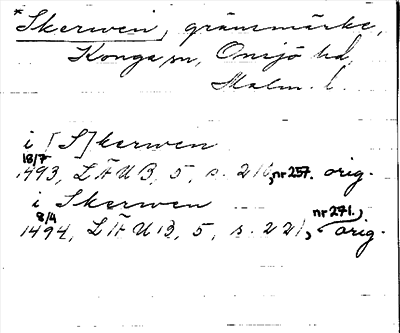 *Skerwen, gränsmärke,
Konga sn, Onsjö hd,
Malm. l.
i [S]kerwen
18/7
1493, LÄUB, 5, s. 210, nr 257. orig.
i Skerwen
8/4
1494, LÄUB, 5, s. 221, nr 271., orig.